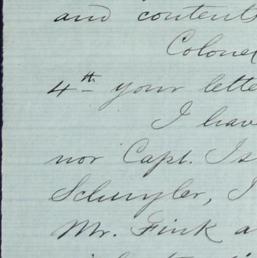 and contents
Colonel
4th your lette
I have
nor Capt. Is
Schuyler, I
Mr. Fink a